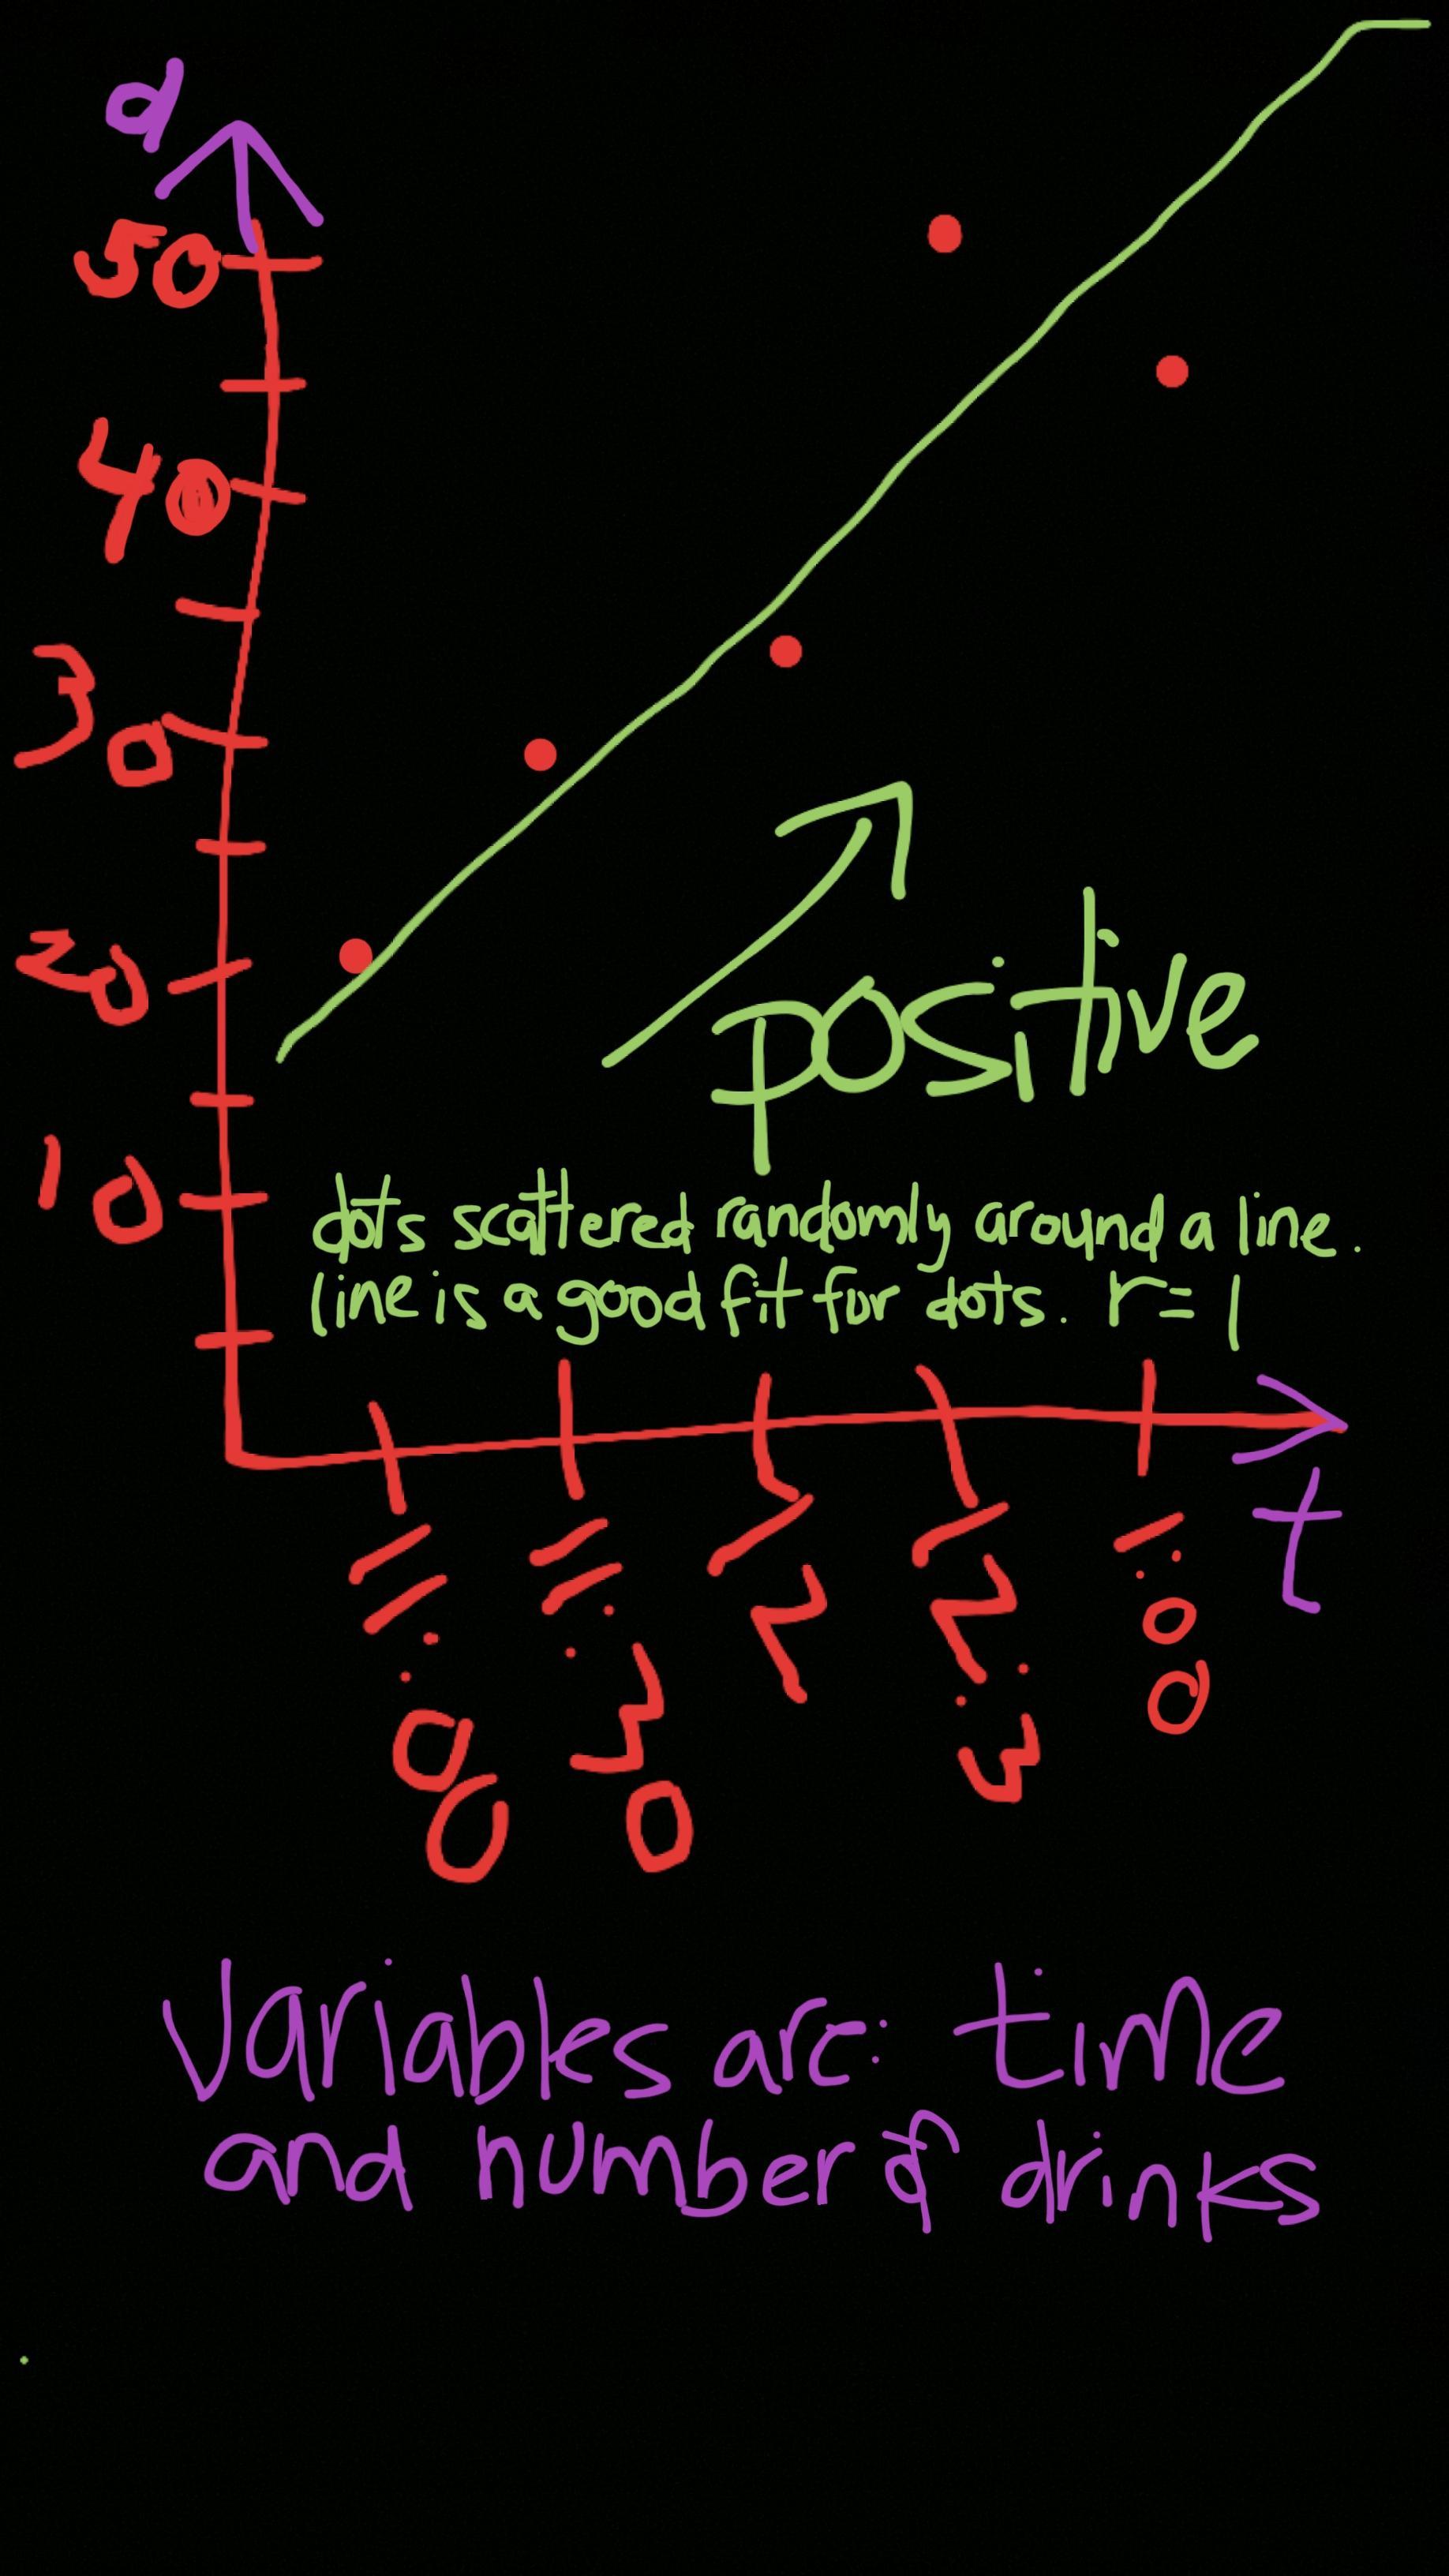 d
50
40
30
20
10
positive
dots scattered randomly around a line.
line is a good fit for dots. r=1
11:00
11:30
12
12:3
1:00
t
Variables are: time
and number of drinks